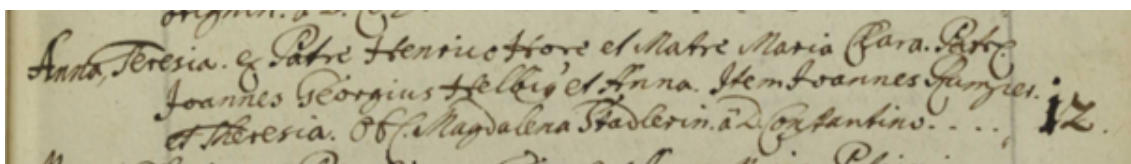 Anna, Teresia. ex Patre Henrico Hore et Matre Maria Clara. Patr:
Joannes Georgius Helbig et Anna. Item Joannes Rumpler.
et Theresia. Obs: Magdalena Stadlerin. a D. Constantino. . . . . 12.